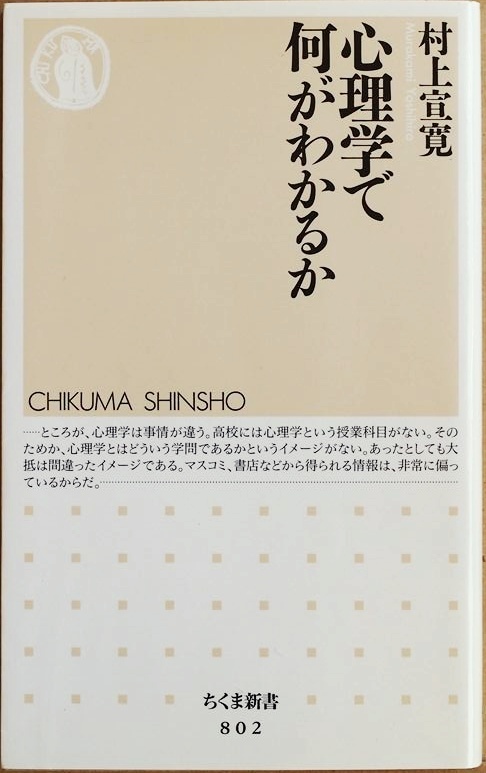 村上宣寛
Murakami Yoshihiro
心理学で
何がわかるか
CHIKUMA SHINSHO
……ところが、心理学は事情が違う。高校には心理学という授業科目がない。その
ためか、心理学とはどういう学問であるかというイメージがない。あったとしても大
抵は間違ったイメージである。マスコミ、書店などから得られる情報は、非常に偏っ
ているからだ。
ちくま新書
802